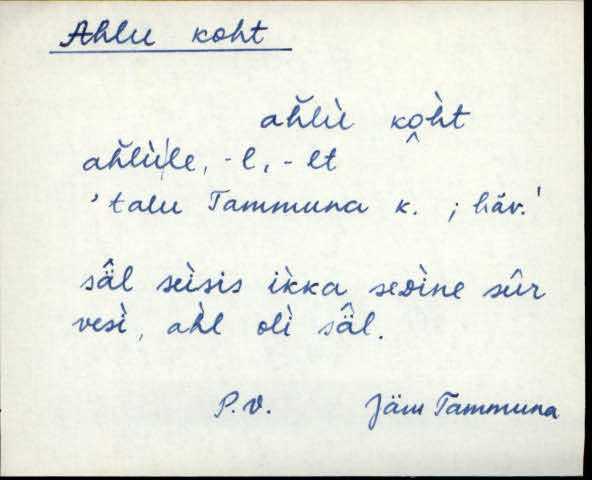 Ahlu koht
ah̆lù ko̭h̀t
ah̆lù|le, -l, -lt
'talu Tammuna k. ; häv.'
sä̂l seìsis ìkka seᴅìne sûr
vesì, ah̀l olì sä̂l.
P.V. Jäm Tammuna